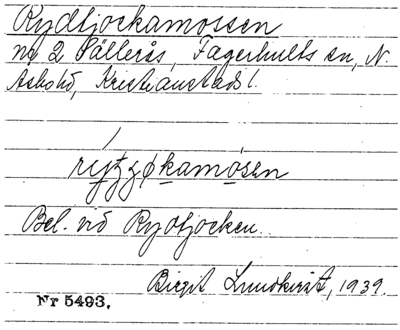 Rydtjockamossen
nr 2 Pålleröd, Fagerhults sn, N.
Asbohd, Kristianstads l.
rýtzøkamósen
Bel. vid Rydtjocken.
Birgit Lundkvist, 1939.
Nr 5493.